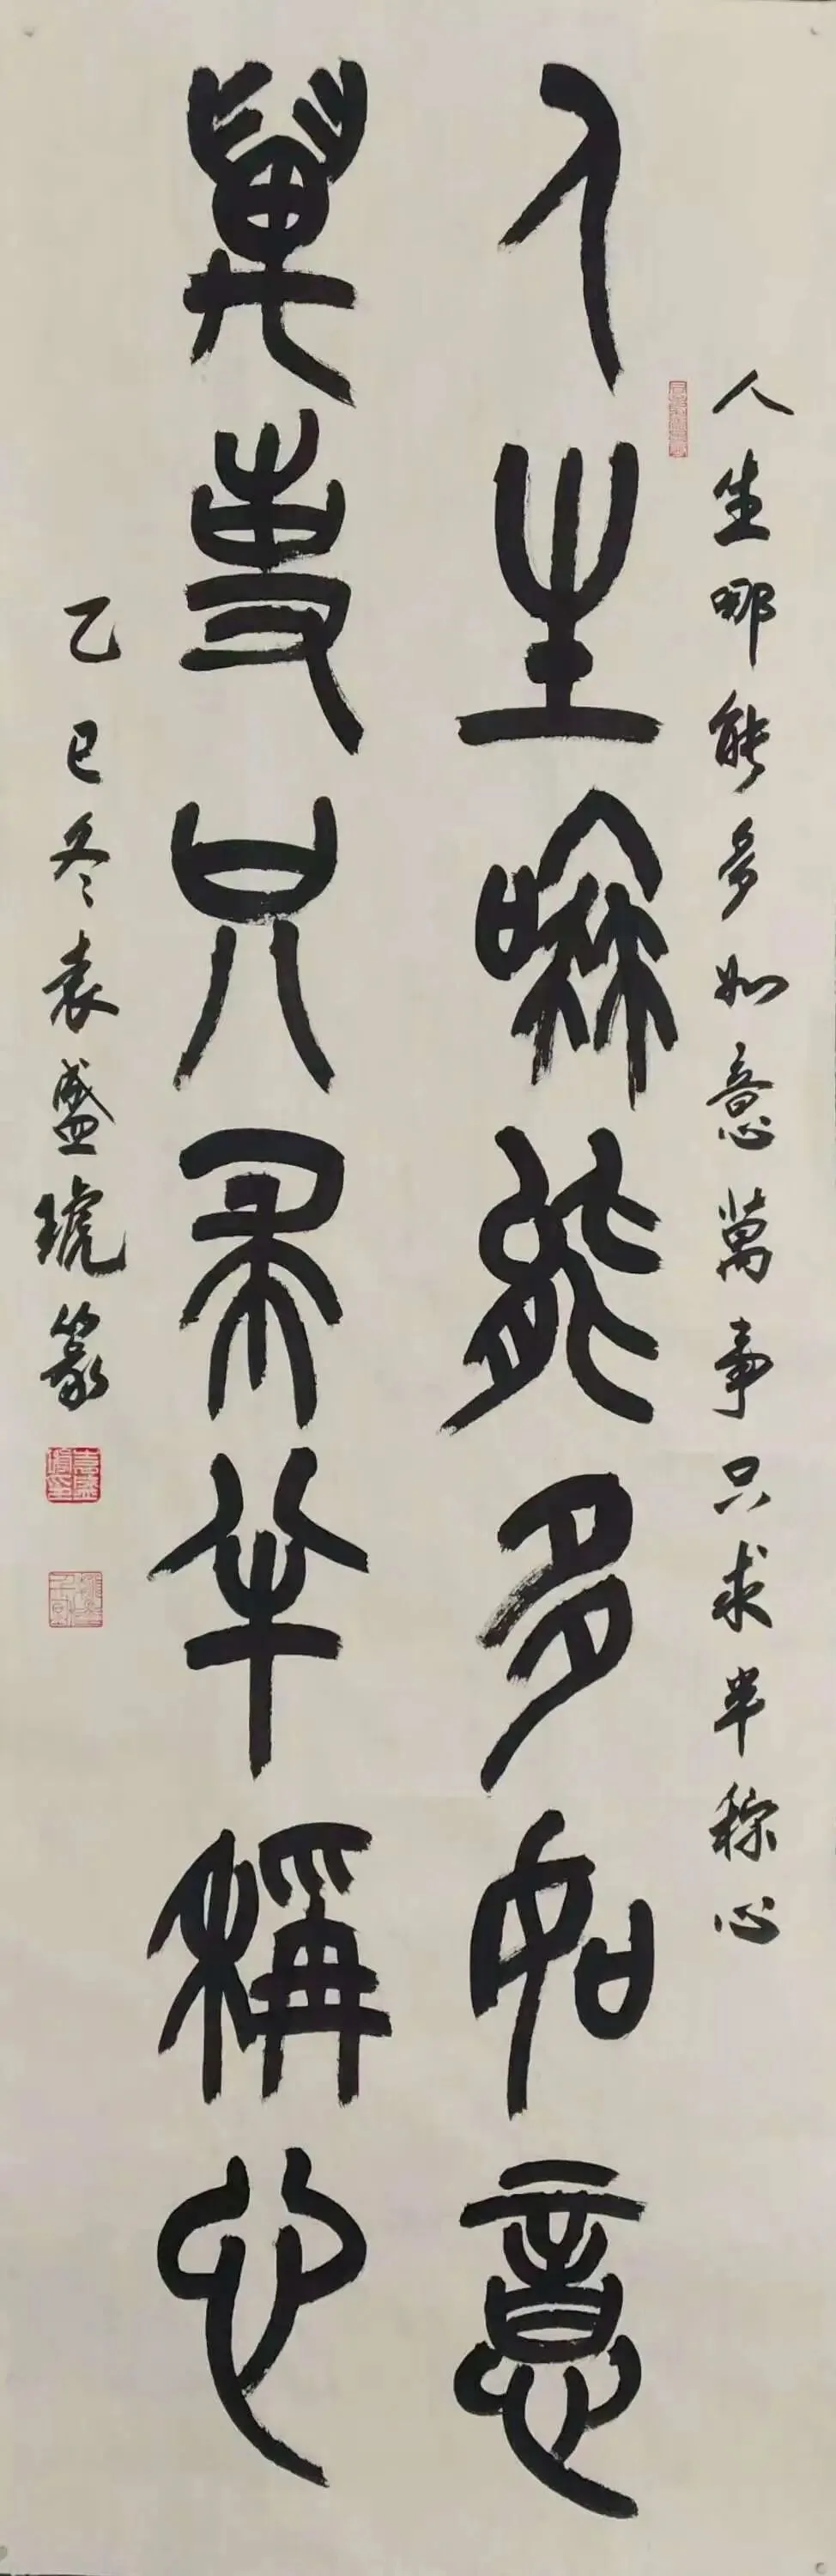 人生哪能多如意萬事只求半稱心
人生哪能多如意
萬事只求半稱心
乙巳冬袁盛琥篆